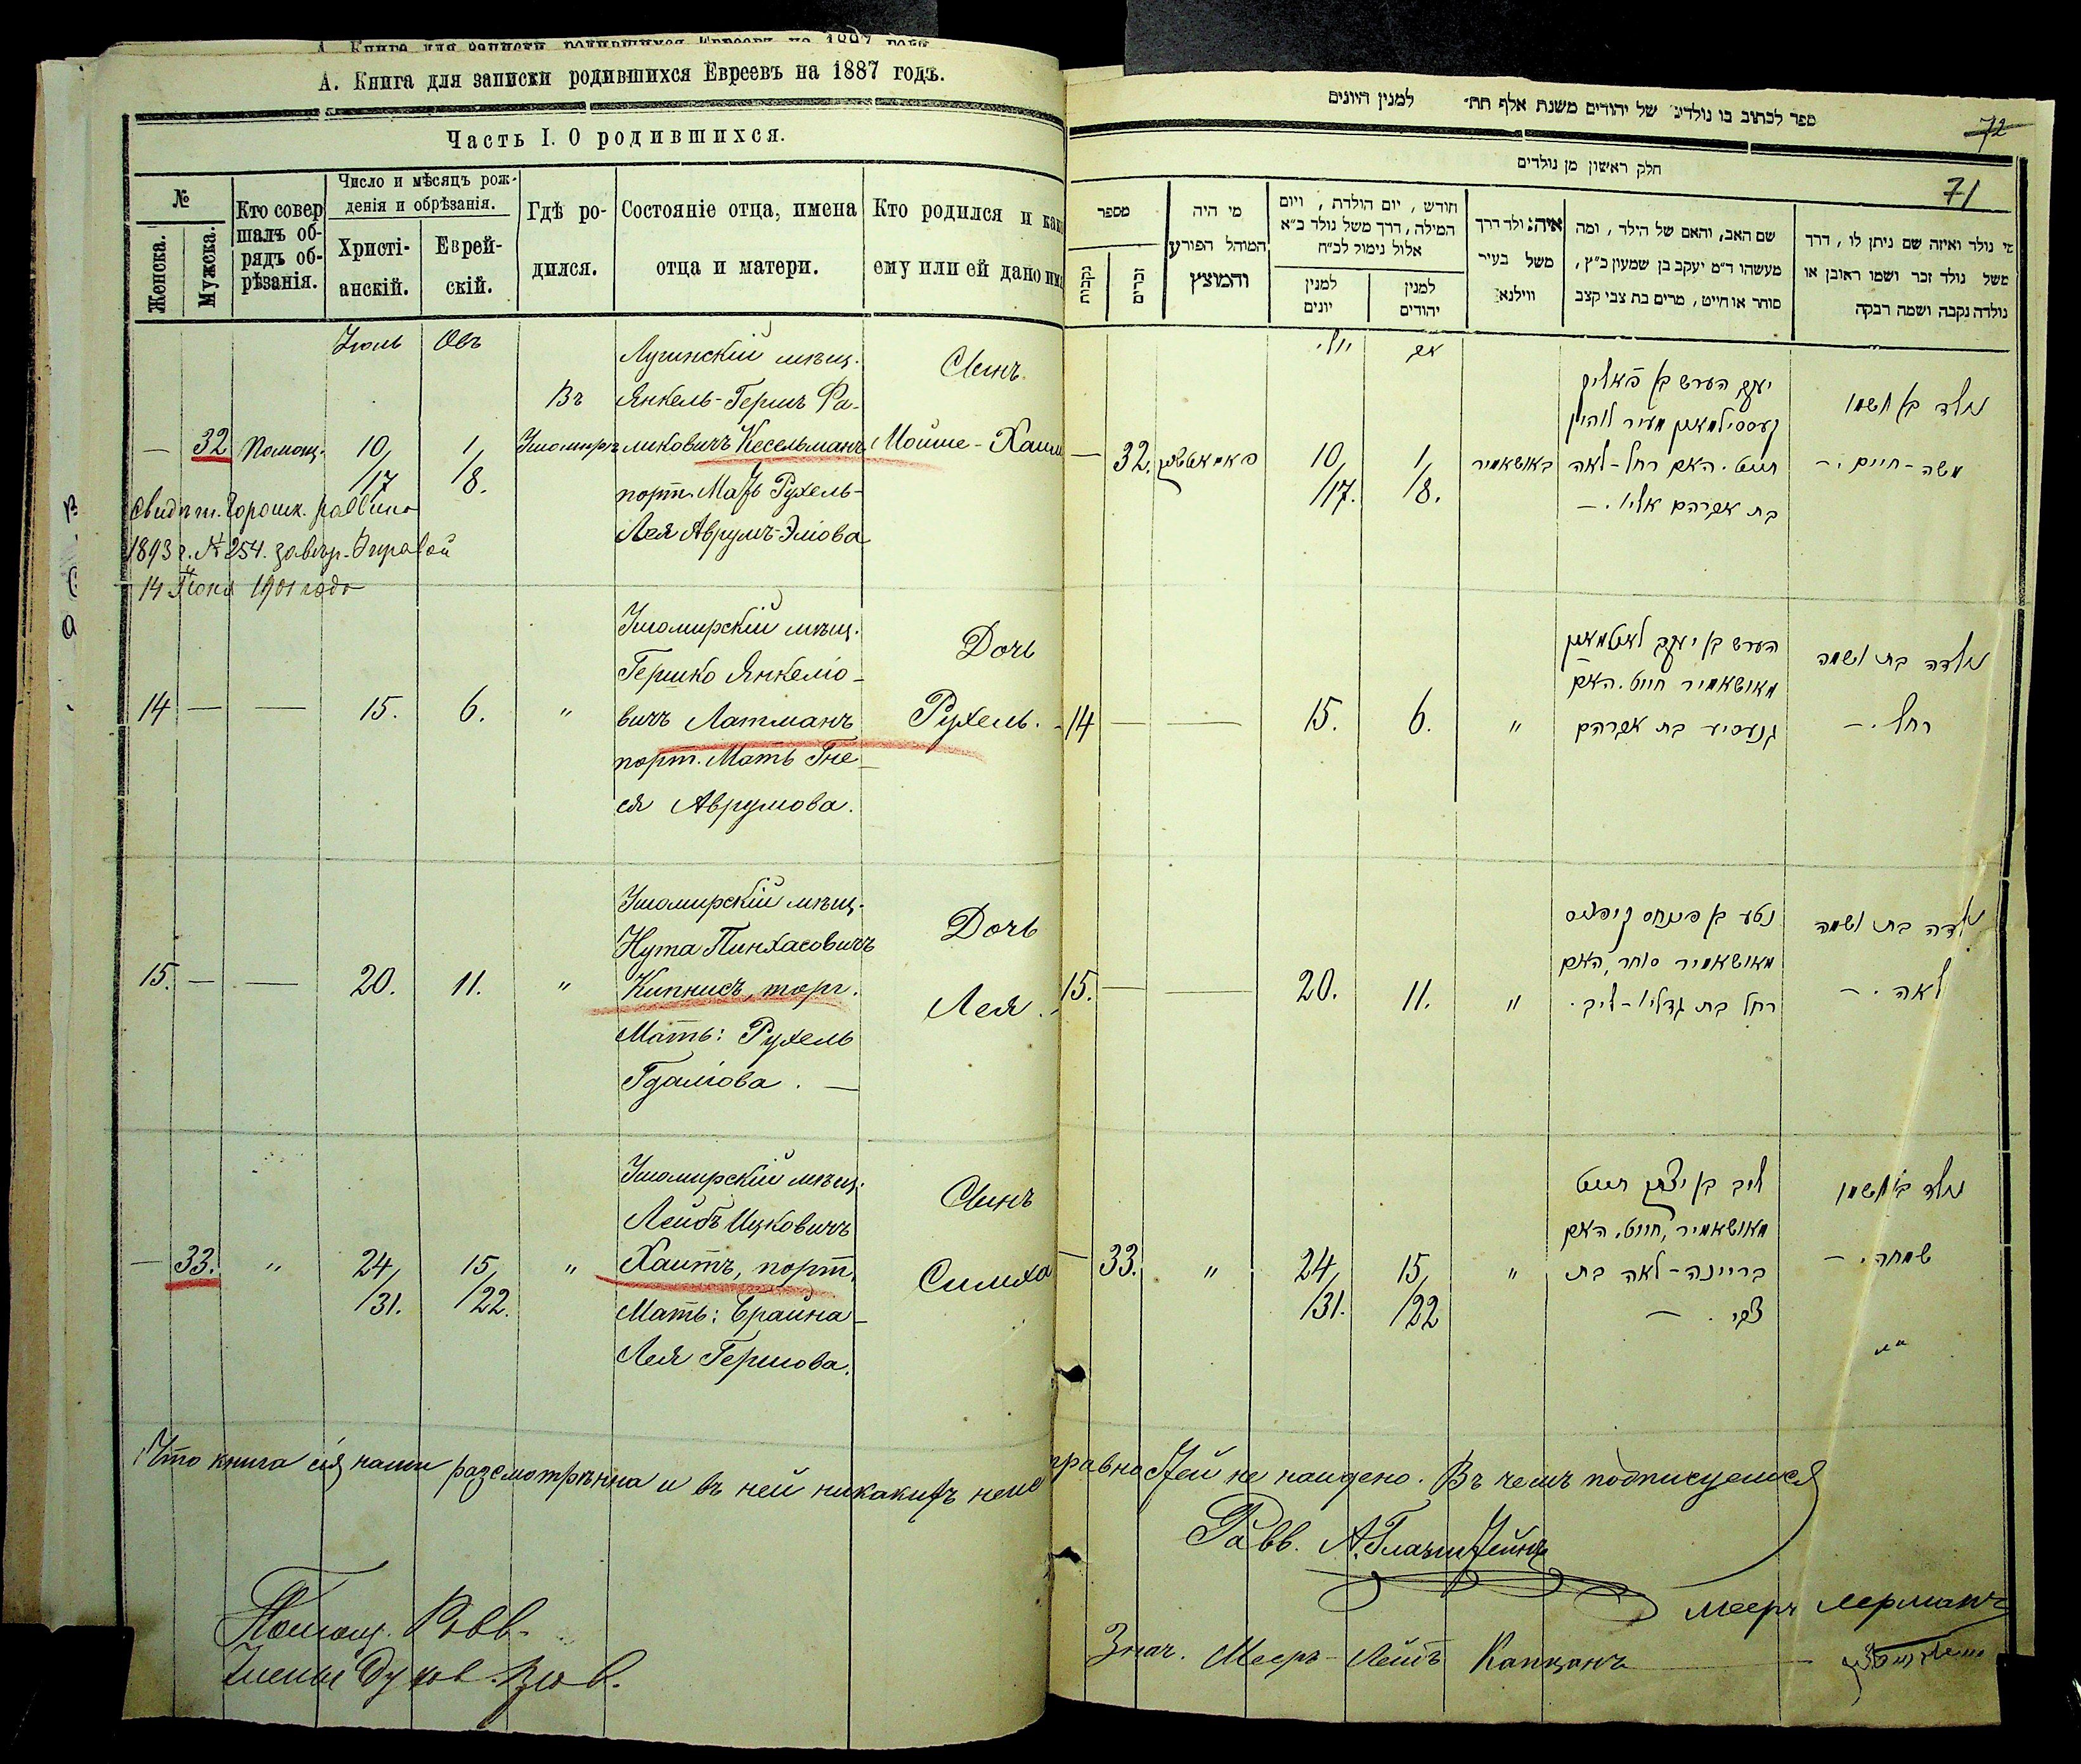 А. Книга для записки родившихся Евреевъ на 1887 годъ.
Часть I. О родившихся.
№
Женска.
Мужска.
Кто совер
шалъ об-
рядъ об-
рѣзанія.
Число и мѣсяцъ рож-
денія и обрѣзанія.
Христі-
анскій.
Еврей-
скій.
Гдѣ ро-
дился.
Состояніе отца, имена
отца и матери.
Кто родился и как
ему или ей дано им
Іюль Овъ
— 32 Помощ. 10/17 1/8.
Въ
Ушомирѣ
Лугинскій мѣщ.
Янкель-Гершъ Фа-
ликовичъ Кесельманъ
порт. Мать Рухель-
Лея Аврумъ-Эліова
Сынъ
Мойше-Хаим
Свидѣт. Горошк. раввина
1893 г. № 254. завѣр. Управой
14 Іюня 1901 года
14 — — 15. 6. "
Ушомирскій мѣщ.
Гершко Янкеліо-
вичъ Латманъ
порт. Мать Гне-
ся Аврумова.
Дочь
Рухель.
15. — — 20. 11. "
Ушомирскій мѣщ.
Нута Пинхасовичъ
Кипнисъ, торг.
Мать: Рухель
Гдаліова. —
Дочь
Лея.
— 33. " 24/31. 15/22. "
Ушомирскій мѣщ.
Лейбъ Ицковичъ
Хаитъ, порт.
Мать: Брайна-
Лея Гершова.
Сынъ
Симха
Что книга сія нами разсмотрѣнна и въ ней никакихъ неис
Помощ. Равв.
ספר לכתוב בו נולדים של יהודים משנת אלף תת״ למנין היונים
72
71
חלק ראשון מן נולדים
מספר
נקבות
זכרים
מי היה
המוהל הפורע
והמוצץ
חודש, יום הולדת, ויום
המילה, דרך משל נולד כ״א
אלול נימול לכ״ח
למנין
יונים
למנין
יהודים
איה: ולד דרך
משל בעיר
ווילנא
שם האב, והאם של הילד, ומה
מעשהו ד״מ יעקב בן שמעון כ״ץ,
סוחר או חייט, מרים בת צבי קצב
מי נולד ואיזה שם ניתן לו, דרך
משל נולד זכר ושמו ראובן או
נולדה נקבה ושמה רבקה
יולי אב
— 32. 10/17. 1/8. באושאמיר
יעקב הערש בן פאליק
קעססילמאן מעיר לוהין
חייט. האם רחל-לאה
בת אברהם אליו. —
נולד בן ושמו
משה-חיים. —
14 — — 15. 6. "
הערש בן יעקב לאטמאן
מאושאמיר חייט. האם
גנעסיע בת אברהם
נולדה בת ושמה
רחל. —
15. — — 20. 11. "
נטע בן פינחס קיפניס
מאושאמיר סוחר, האם
רחל בת גדליו-ליב.
נולדה בת ושמה
לאה. —
— 33. " 24/31. 15/22 "
ליב בן יצחק חייט
מאושאמיר, חייט. האם
בריינה-לאה בת
צבי. —
נולד בן ושמו
שמחה. —
правностей не найдено. Въ чемъ подписуемся
Равв. А. Глазштейнъ
Мееръ Лерманъ
Знач. Мееръ-Лейбъ Капцанъ